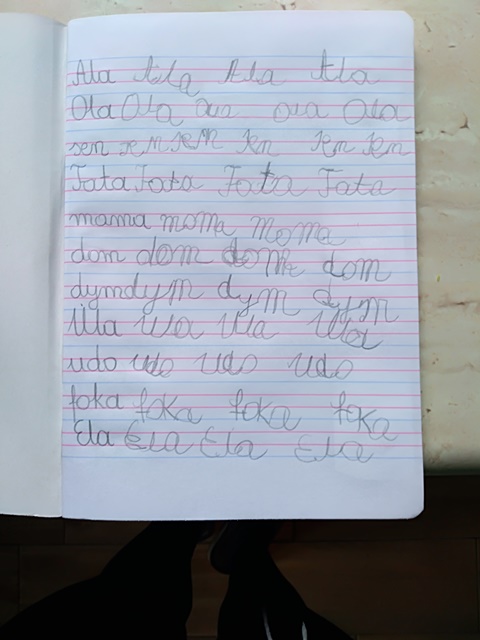 Ala Ala Ala Ala
Ola Ola Ola Ola Ola
sen sen sen sen sen sen
Tata Tata Tata Tata
mama moma moma
dom dom dom dom
dym dym dym dym
Ula Ula Ula Ula
udo udo udo udo
foka foka foka foka
Ela Ela Ela Ela